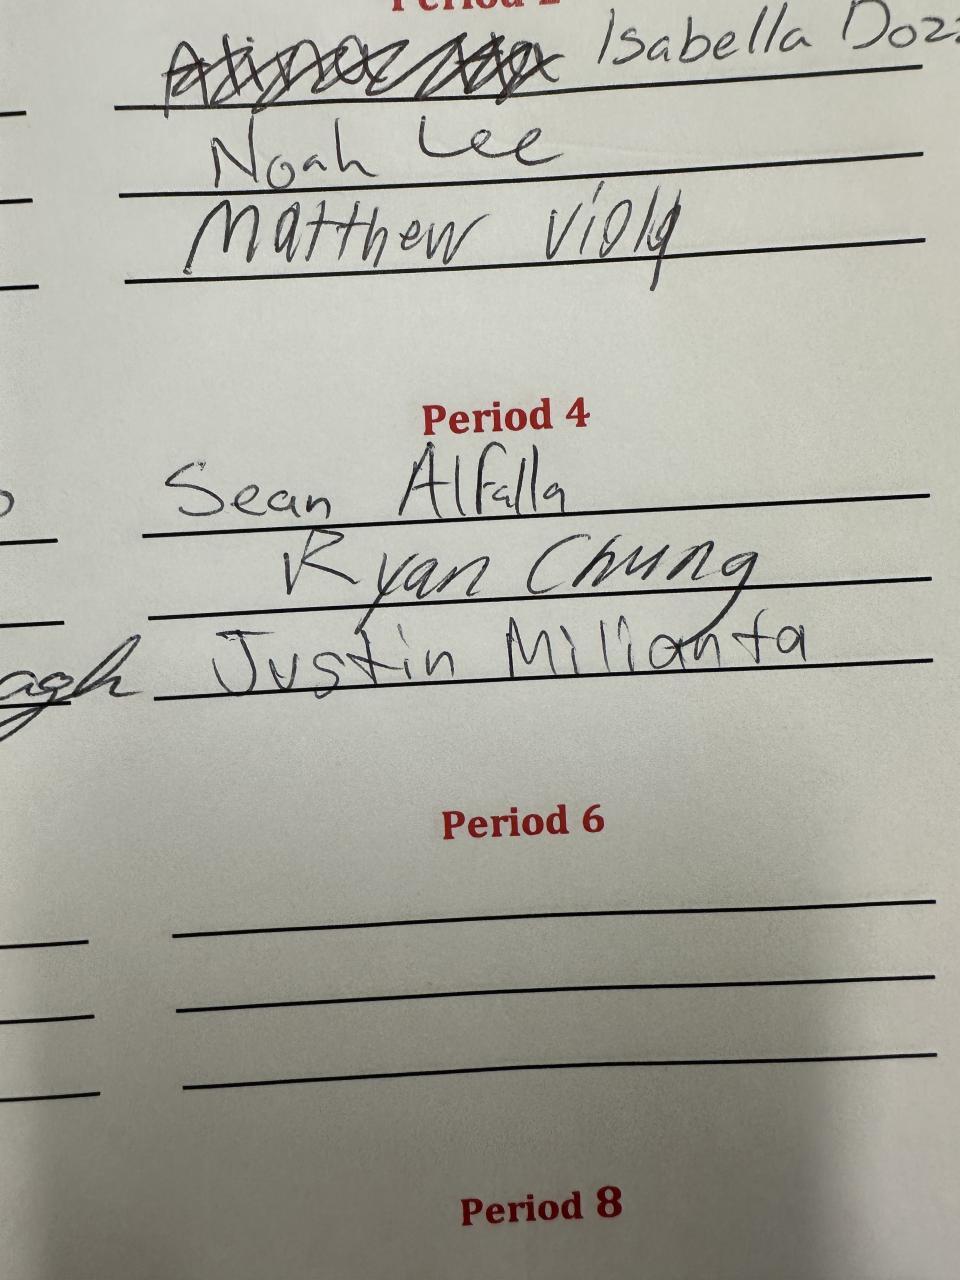 Period 2
Isabella Dozz
Noah Lee
Matthew Viola
Period 4
Sean Alfalla
Ryan Chung
agh Justin Millanta
Period 6
Period 8